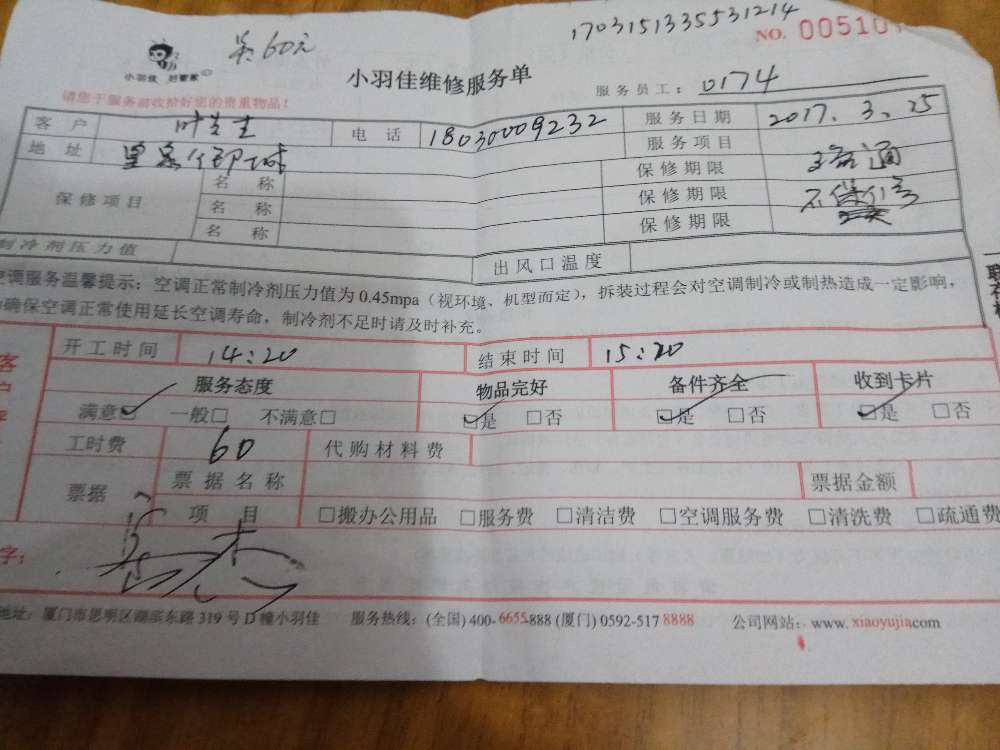 1703151335531214
NO. 00510
吴60元
小羽佳 好管家
小羽佳维修服务单
服务员工: 0174
请您于服务前收拾好您的贵重物品!
客户 叶先生 电话 18030009232 服务日期 2017.3.25
地址 服务项目 通
保修项目 名称 保修期限 不保修
名称 保修期限
名称 保修期限
制冷剂压力值 出风口温度
空调服务温馨提示: 空调正常制冷剂压力值为0.45mpa (视环境、机型而定), 拆装过程会对空调制冷或制热造成一定影响,
确保空调正常使用延长空调寿命, 制冷剂不足时请及时补充。
开工时间 14:20 结束时间 15:20
服务态度 物品完好 备件齐全 收到卡片
满意☑ 一般□ 不满意□ ☑是 □否 ☑是 □否 ☑是 □否
工时费 60 代购材料费
票据 票据名称 票据金额
项目 □搬办公用品 □服务费 □清洁费 □空调服务费 □清洗费 □疏通费
字:
地址: 厦门市思明区湖滨东路319号D幢小羽佳 服务热线: (全国) 400-6655-888 (厦门) 0592-517 8888 公司网站: www. xiaoyujia.com